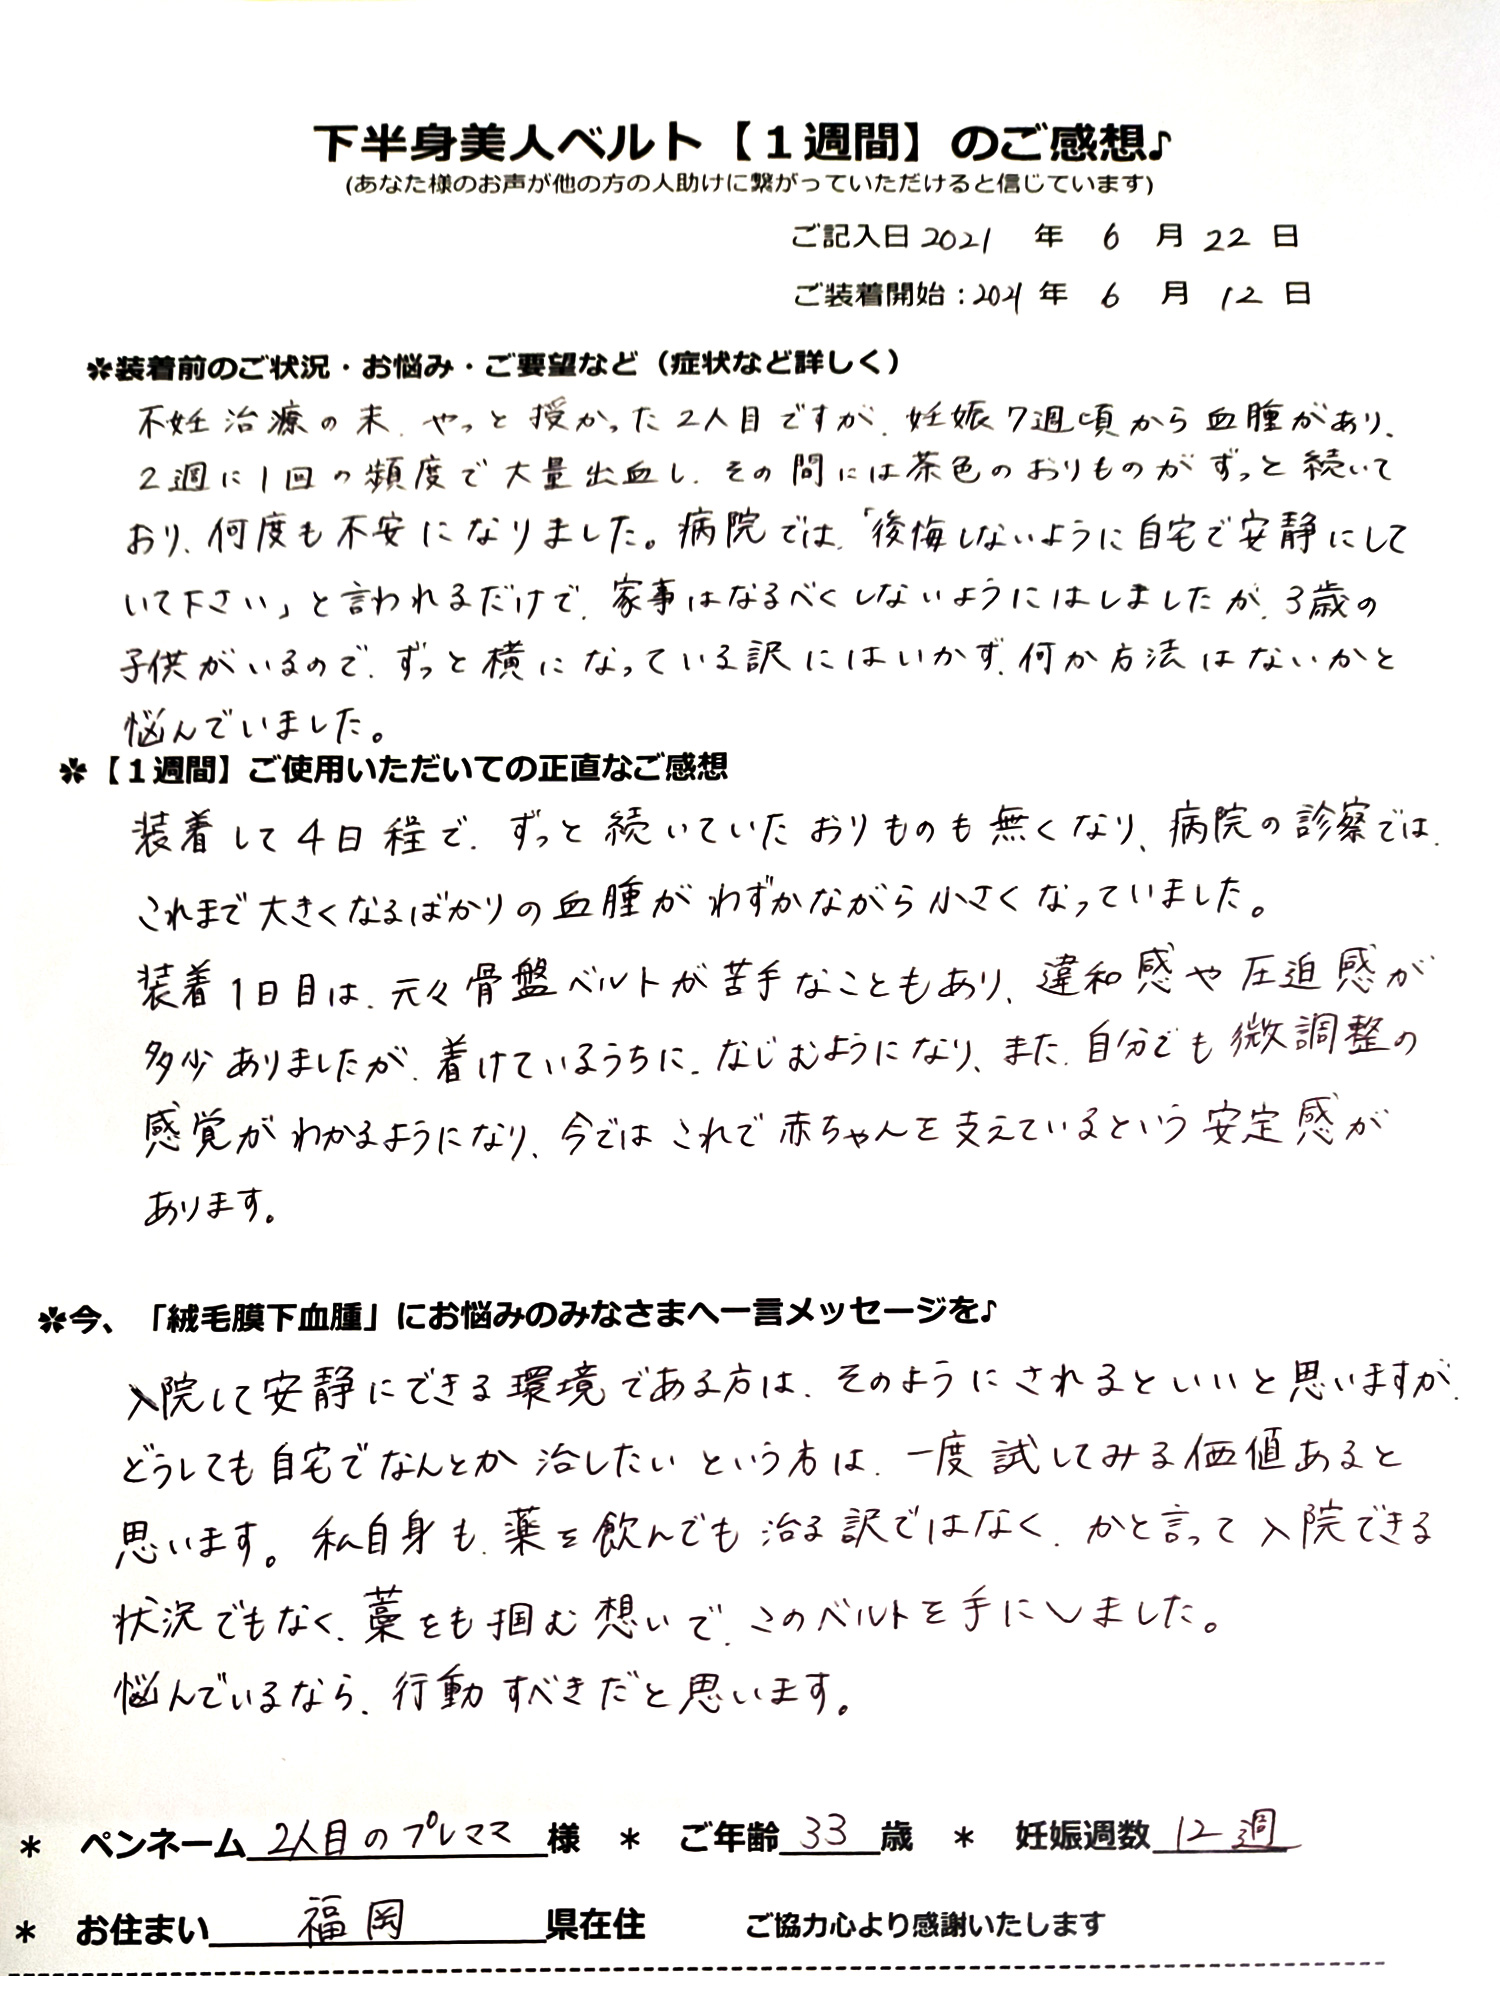 下半身美人ベルト【１週間】のご感想♪
(あなた様のお声が他の方の人助けに繋がっていただけると信じています)
ご記入日 2021 年 6 月 22 日
ご装着開始：2021 年 6 月 12 日
✽装着前のご状況・お悩み・ご要望など（症状など詳しく）
不妊治療の末、やっと授かった2人目ですが、妊娠7週頃から血腫があり、
2週に1回の頻度で大量出血し、その間には茶色のおりものがずっと続いて
おり、何度も不安になりました。病院では、「後悔しないように自宅で安静にして
いて下さい」と言われるだけで、家事はなるべくしないようにはしましたが、3歳の
子供がいるので、ずっと横になっている訳にはいかず、何か方法はないかと
悩んでいました。
✽【１週間】ご使用いただいての正直なご感想
装着して4日程で、ずっと続いていたおりものも無くなり、病院の診察では、
これまで大きくなるばかりの血腫がわずかながら小さくなっていました。
装着1日目は、元々骨盤ベルトが苦手なこともあり、違和感や圧迫感が
多少ありましたが、着けているうちに、なじむようになり、また、自分でも微調整の
感覚がわかるようになり、今ではこれで赤ちゃんを支えているという安定感が
あります。
✽今、「絨毛膜下血腫」にお悩みのみなさまへ一言メッセージを♪
入院して安静にできる環境である方は、そのようにされるといいと思いますが、
どうしても自宅でなんとか治したいという方は、一度試してみる価値あると
思います。私自身も、薬を飲んでも治る訳ではなく、かと言って入院できる
状況でもなく、藁をも掴む想いで、このベルトを手にしました。
悩んでいるなら、行動すべきだと思います。
＊ ペンネーム 2人目のプレママ 様 ＊ ご年齢 33 歳 ＊ 妊娠週数 12週
＊ お住まい 福岡 県在住 ご協力心より感謝いたします